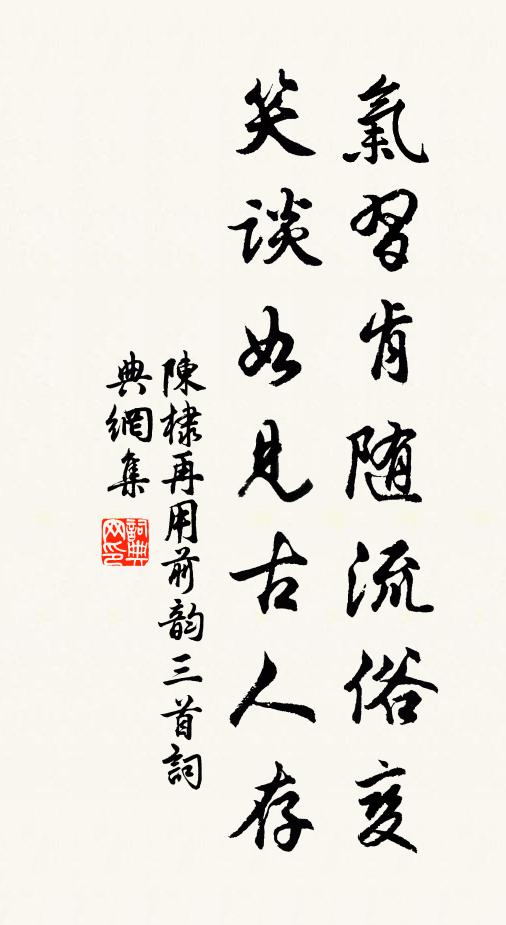 氣習肯随流俗变
笑談如見古人存
陳棣再用前韵三首詞
典網集
詞典网印